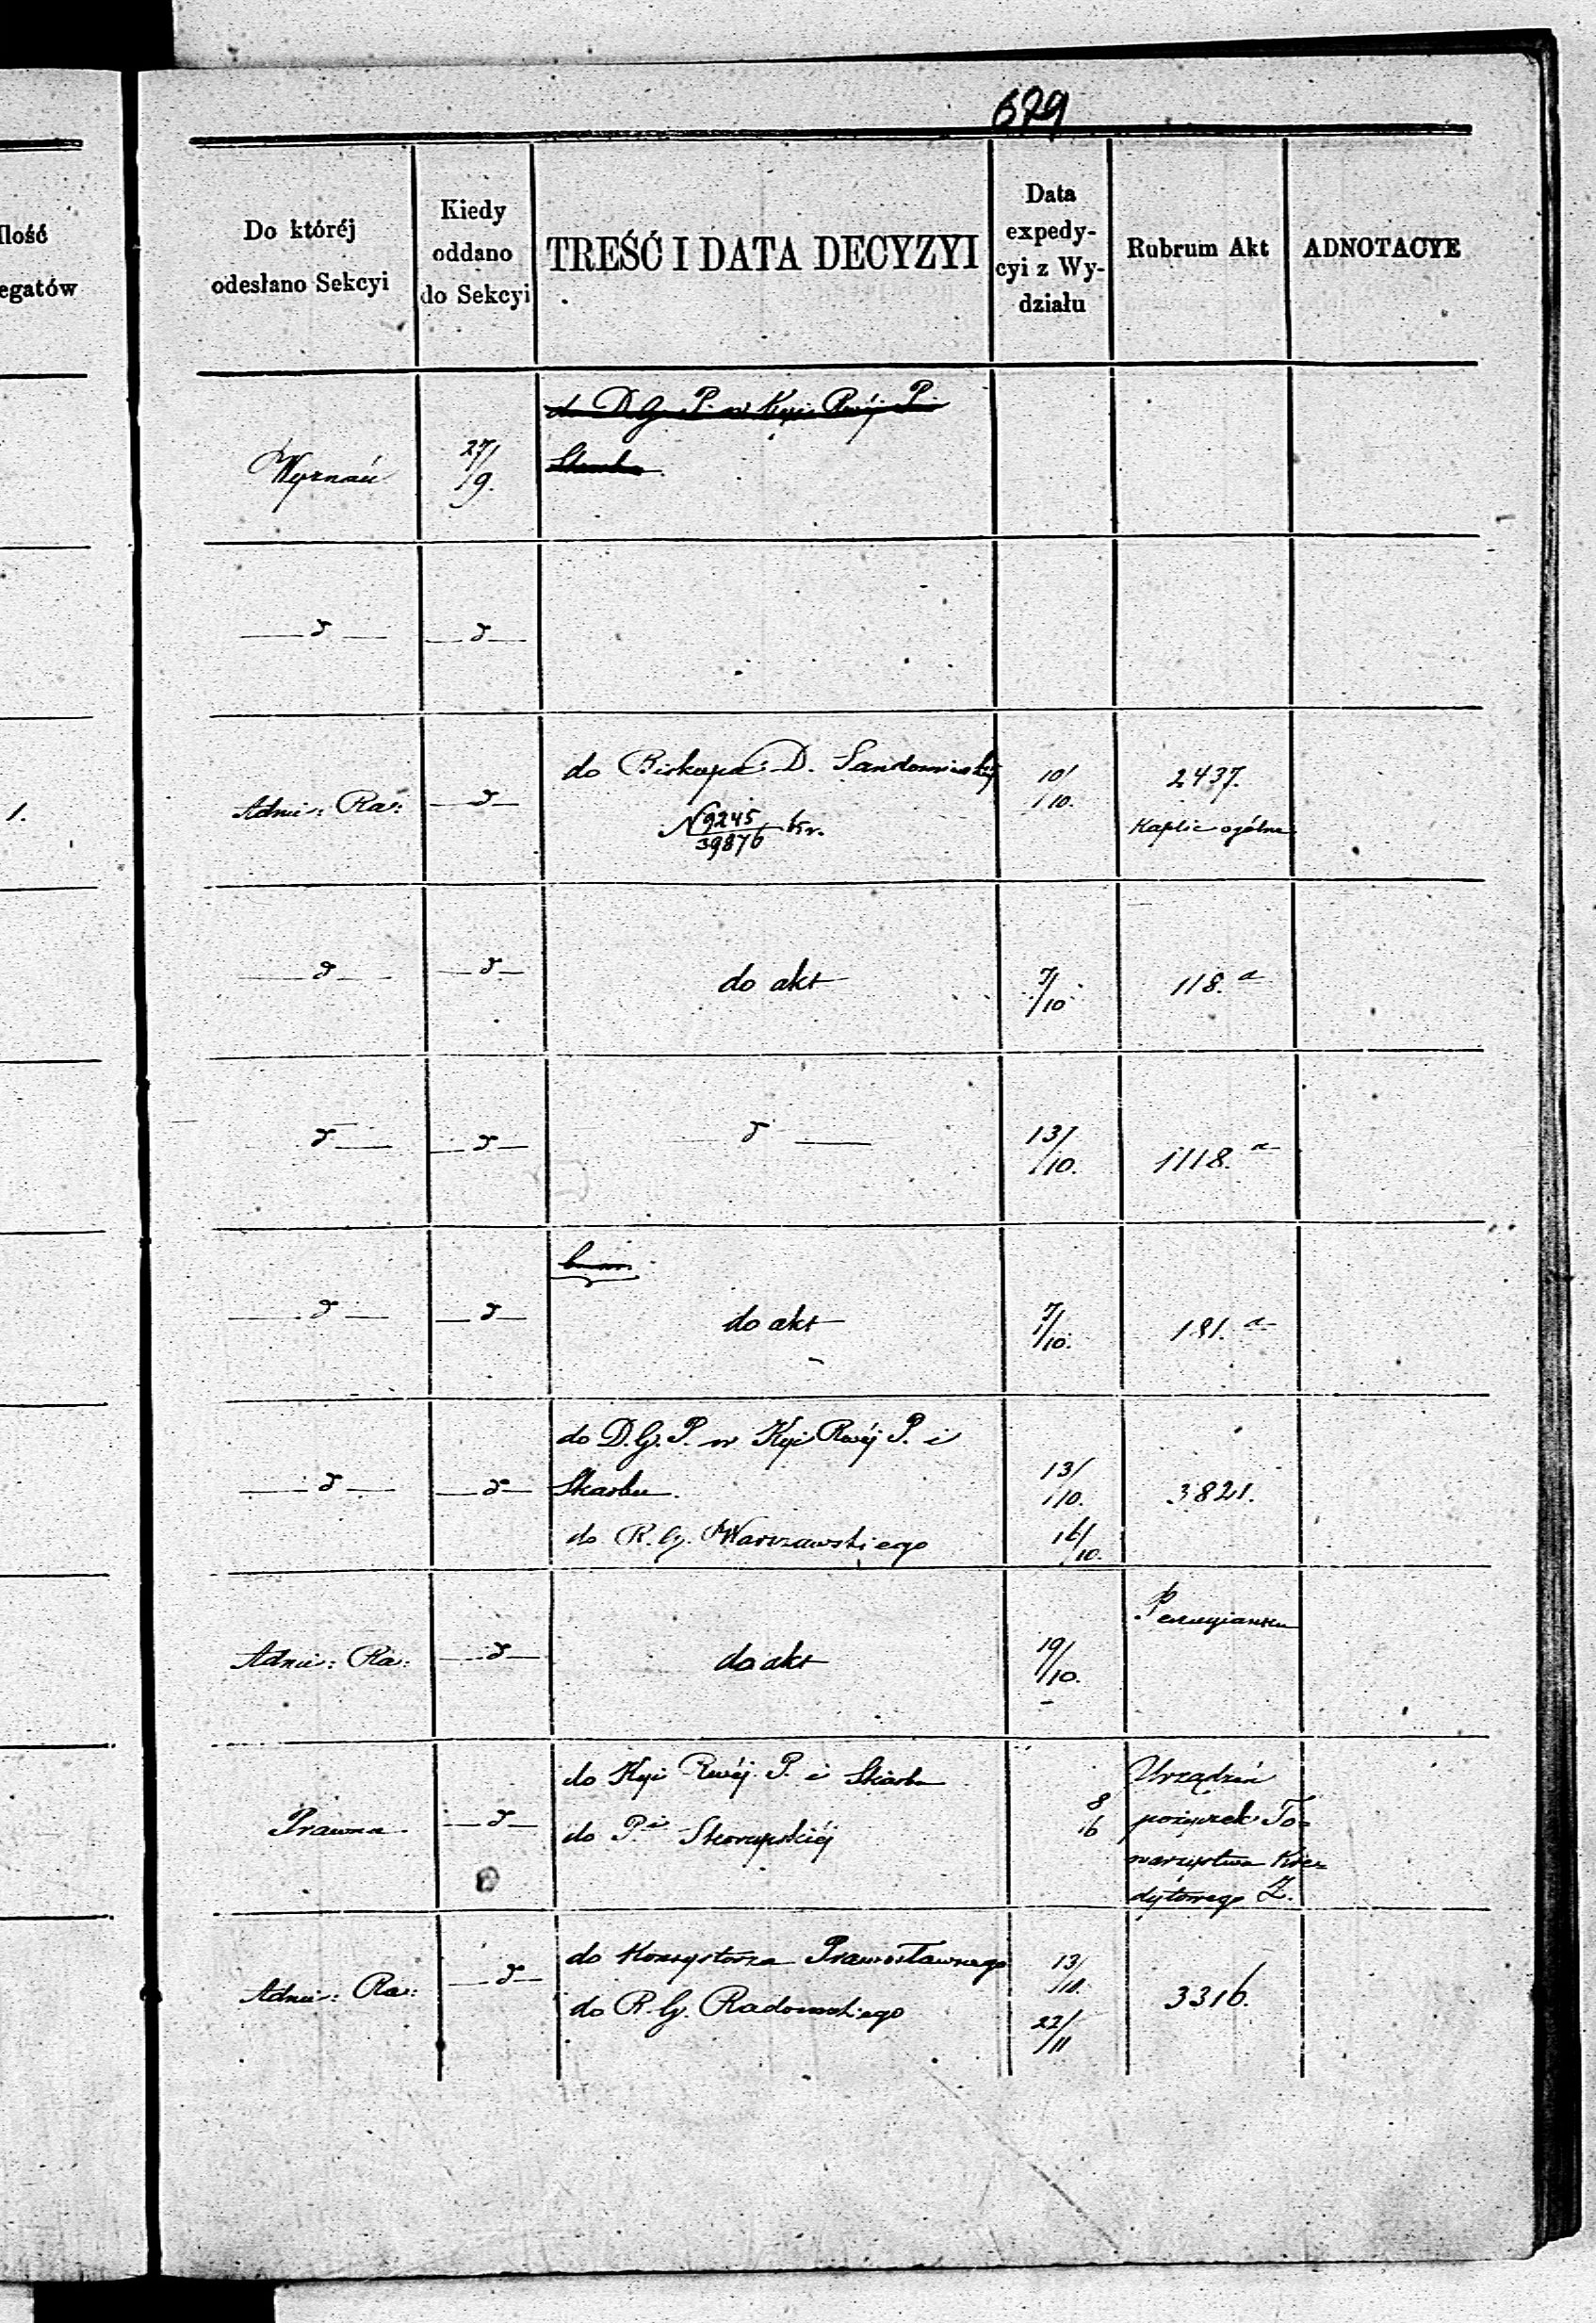 679
Ilość
egatów
Do któréj
odesłano Sekcyi
Kiedy
oddano
do Sekcyi
TREŚĆ I DATA DECYZYI
Data
expedy-
cyi z Wy-
działu
Rubrum Akt
ADNOTACYE
Wyznań
27/9.
do D.G. P. w Kyi Rwéj P. i
Skarbu.
— d — — d —
1.
Admi: Ra: — d —
do Biskupa D. Sandomirskiej
N 9245/39876 Kr.
10/10.
2437.
Kaplic ogólne
— d — — d — do akt 7/10. 118.a
— d — — d — — d — 13/10. 1118.a
— d — — d — do akt 7/10. 181.a
— d — — d —
do D.G. P. w Kyi Rwéj P. i
Skarbu.
do R. G. Warszawskiego
13/10.
16/10.
3821.
Admi: Ra: — d — do akt 19/10.
Prawna — d —
do Kyi Rwéj P. i Skarbu
do P.i Skorupskiéj
8
16
Urządzeń
pożyczek To-
warzystwa Kre-
dytowego Z.
Admi: Ra: — d —
do Konsystorza Prawosławnego
do R. G. Radomskiego
13/10.
22/11
3316.